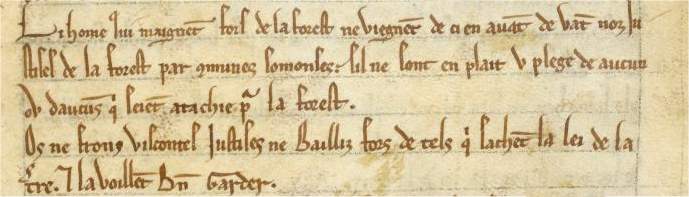 Li home qui maignent fors de la forest ne viegnent de ci en auant de uant noz iu
stises de la forest par cmunes somonses: sil ne sont en plait v plege de aucun
ov daucuns q̇ seient atachie p̃ la forest.
Os ne ferons viscontes Justises ne Bailliz fors de tels q̇ sachent la lei de la
tre. ⁊ la voillent Bn̄ Garder.